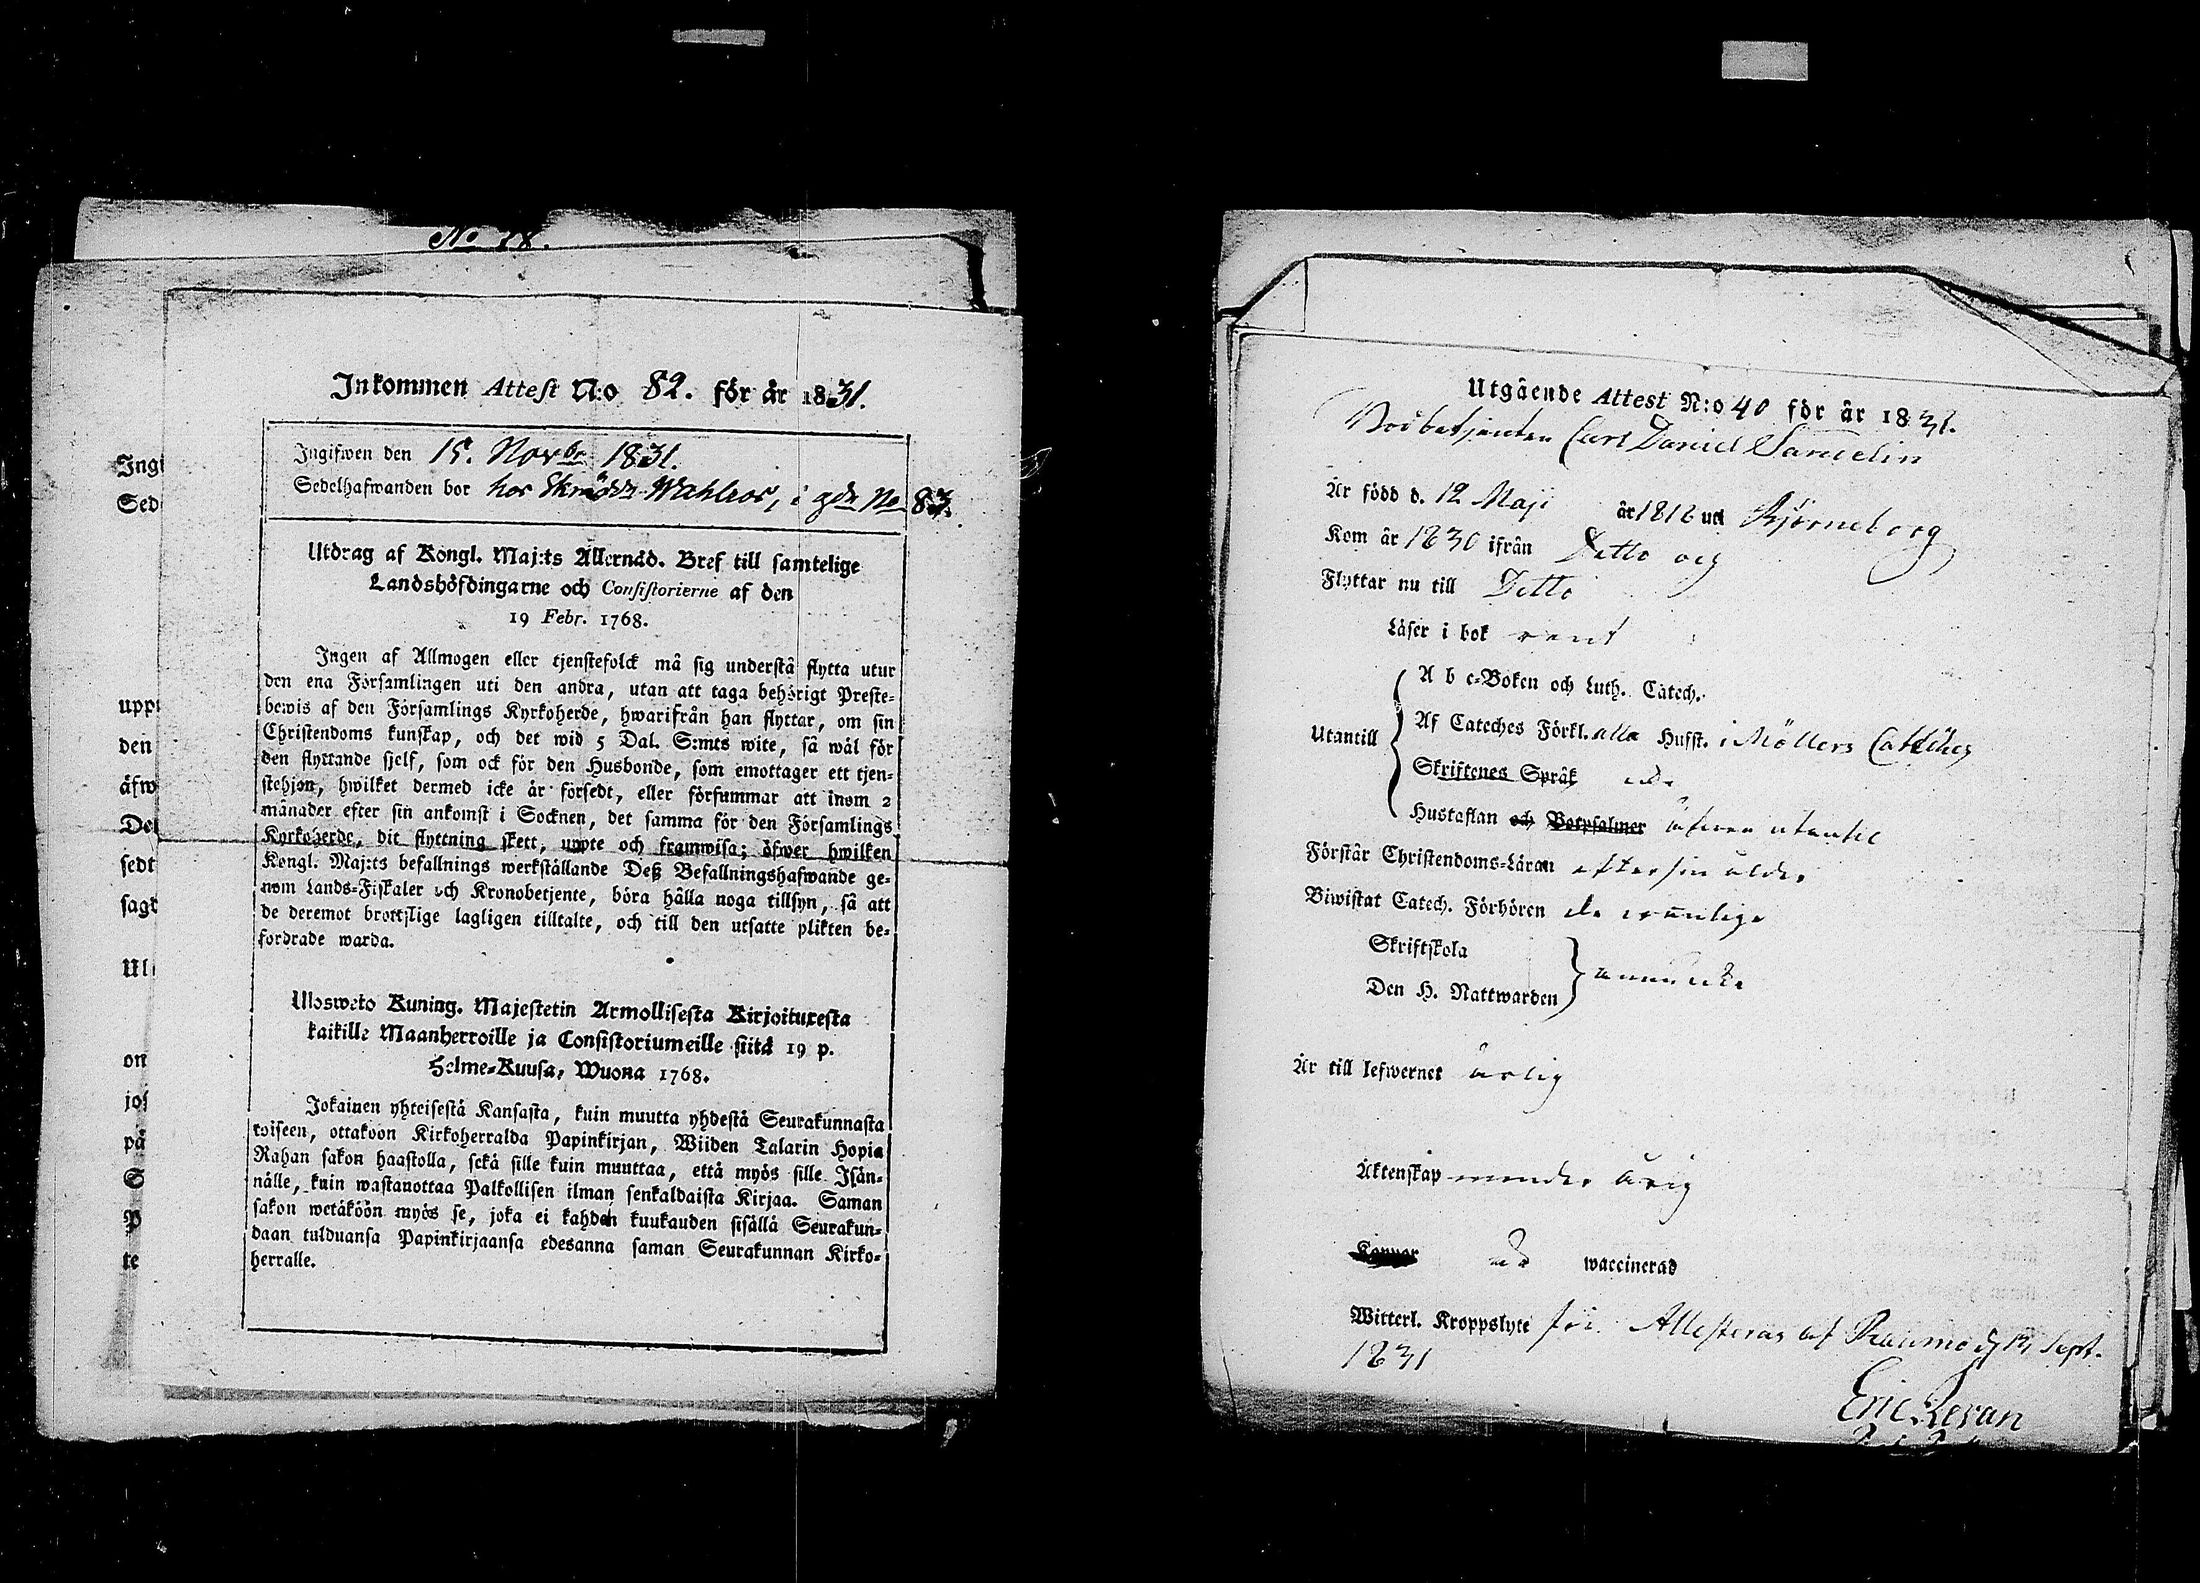 No 78.
Inkommen Attest N:o 82. för år 1831.
Ingifwen den 15. Novbr 1831.
Sedelhafwanden bor hos Skrädd. Wahlros, i gdn No 83.
Utdrag af Kongl. Maj:ts Allernåd. Bref till samtelige
Landshöfdingarne och Consistorierne af den
19 Febr. 1768.
Ingen af Allmogen eller tjenstefolck må sig understå flytta utur
den ena Församlingen uti den andra, utan att taga behörigt Preste-
bewis af den Församlings Kyrkoherde, hwarifrån han flyttar, om sin
Christendoms kunskap, och det wid 5 Dal. S:mts wite, så wäl för
den flyttande sjelf, som ock för den Husbonde, som emottager ett tjen-
stehjon, hwilket dermed icke är försedt, eller försummar att inom 2
månader efter sin ankomst i Socknen, det samma för den Församlings
Kyrkoherde, dit flyttning skett, uppte och framwisa; öfwer hwilken
Kongl. Maj:ts befallnings werkställande Deß Befallningshafwande ge-
nom Lands-Fiskaler och Kronobetjente, böra hålla noga tillsyn, så att
de deremot brottslige lagligen tilltalte, och till den utsatte plikten be-
fordrade warda.
Ulosweto Kuning. Majestetin Armollisesta Kirjoituxesta
kaikille Maanherroille ja Consistoriumeille siitä 19 p.
Helme-Kuusa, Wuona 1768.
Jokainen yhteisestä Kansasta, kuin muutta yhdestä Seurakunnasta
toiseen, ottakoon Kirkoherralda Papinkirjan, Wiiden Talarin Hopia
Rahan sakon haastolla, sekä sille kuin muuttaa, että myös sille Isän-
nälle, kuin wastanottaa Palkollisen ilman senkaldaista Kirjaa. Saman
sakon wetäköön myös se, joka ei kahden kuukauden sisällä Seurakun-
daan tulduansa Papinkirjaansa edesanna saman Seurakunnan Kirko-
herralle.
Ingi
Sed
upp
den
äfw
De
sedt
sagt
Ul
on
jo
på
S
P
te
Utgående Attest N:o 40 för år 1831.
Carl Daniel Samelin
Är född d. 12 Maji år 1818 uti Björneborg
Kom år 1830 ifrån Ditto och
Flyttar nu till Ditto
Läser i bok rent
Utantill
A b c-Boken och Luth. Catech.
Af Cateches Förkl. alla Husst. i Möllers Cateches
Skriftenes Språk
Hustaflan och Botpsalmer äfwen utantil
Förstår Christendoms-Läran efter sin ålder
Biwistat Catech. Förhören
Skriftskola
Den H. Nattwarden
ännu icke
Är till lefwernet ärlig
Äktenskap minder årig
Koppor waccinerad
Witterl. Kroppslyte fri. Attesteras af Raumo d. 13 Sept.
1831
Eric Revan